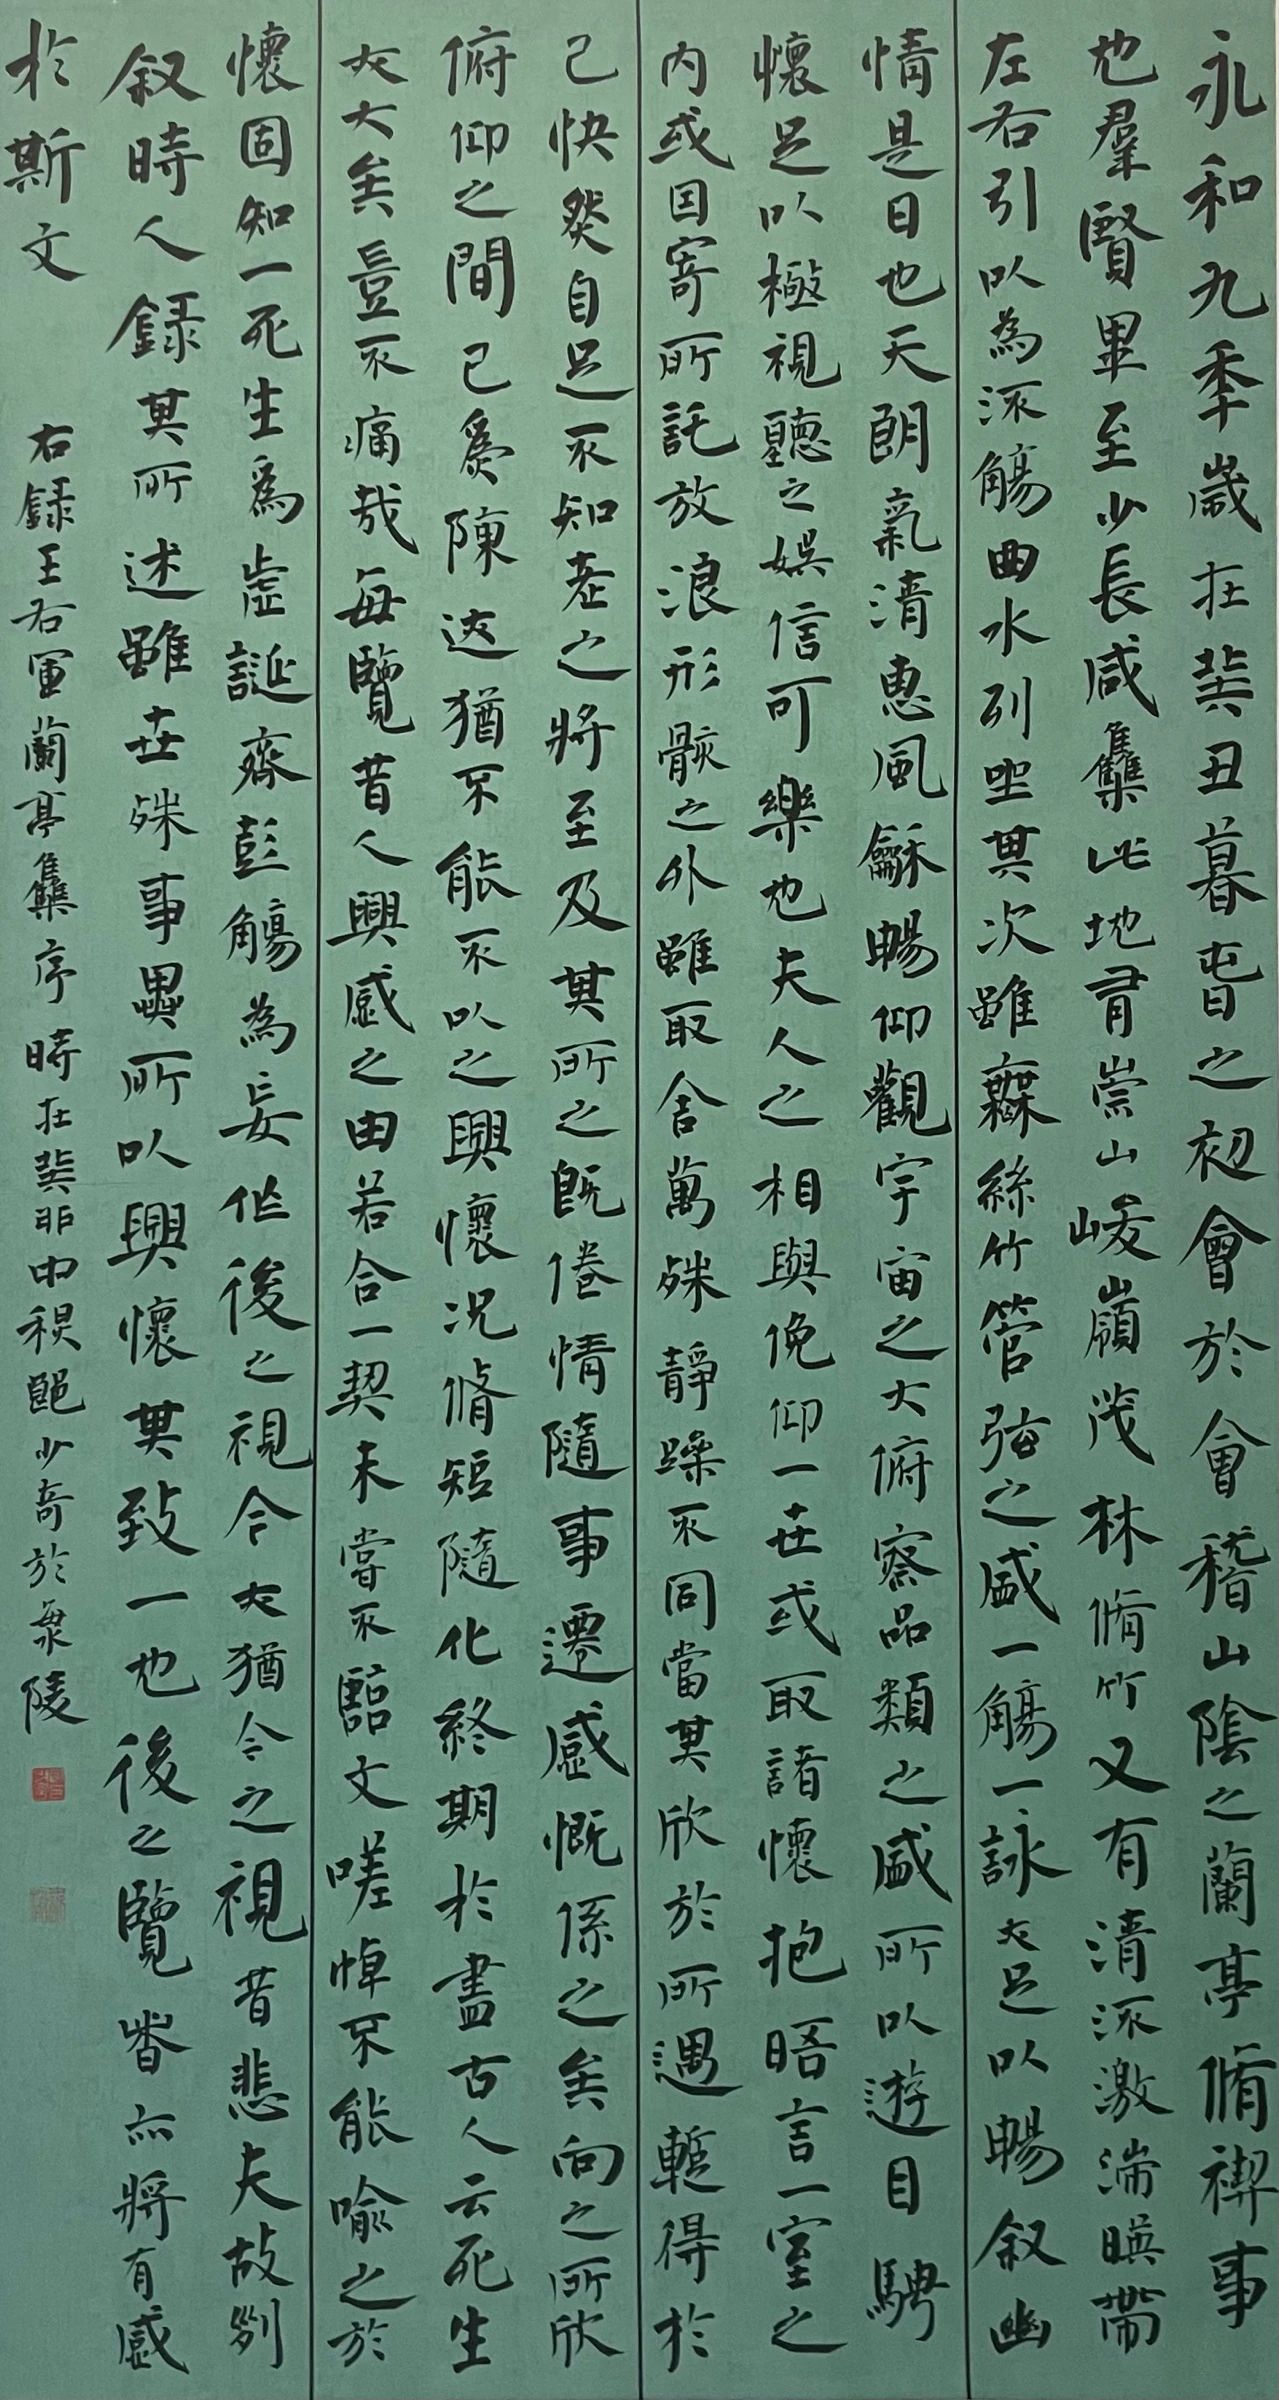 永和九季歲在癸丑暮春之初會於會稽山陰之蘭亭脩禊事
也羣賢畢至少長咸集此地有崇山峻嶺茂林脩竹又有清流激湍暎帶
左右引以為流觴曲水列坐其次雖無絲竹管弦之盛一觴一詠亦足以暢叙幽
情是日也天朗氣清惠風龢暢仰觀宇宙之大俯察品類之盛所以遊目騁
懷足以極視聽之娛信可樂也夫人之相與俛仰一世或取諸懷抱晤言一室之
内或因寄所託放浪形骸之外雖取舍萬殊靜躁不同當其欣於所遇蹔得於
己快然自足不知老之將至及其所之既倦情隨事遷感慨係之矣向之所欣
俯仰之間已為陳迹猶不能不以之興懷況脩短隨化終期於盡古人云死生
亦大矣豈不痛哉每覽昔人興感之由若合一契未嘗不臨文嗟悼不能喻之於
懷固知一死生為虛誕齊彭觴為妄作後之視今亦猶今之視昔悲夫故列
叙時人錄其所述雖世殊事異所以興懷其致一也後之覽者亦將有感
於斯文
右錄王右軍蘭亭集序時在癸卯中秋少奇於陵